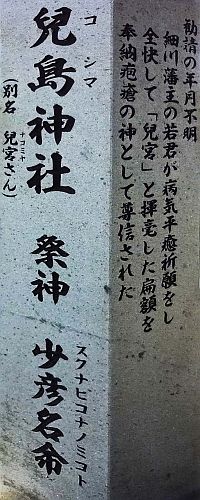 勧請の年月不明
細川藩主の若君が病気平癒祈願をし
全快して「兒宮」と揮毫した扁額を
奉納疱瘡の神として尊信された
コシマ
兒島神社 祭神 少彦名命
スクナビコナノミコト
(別名 兒宮さん)
ナコミヤ